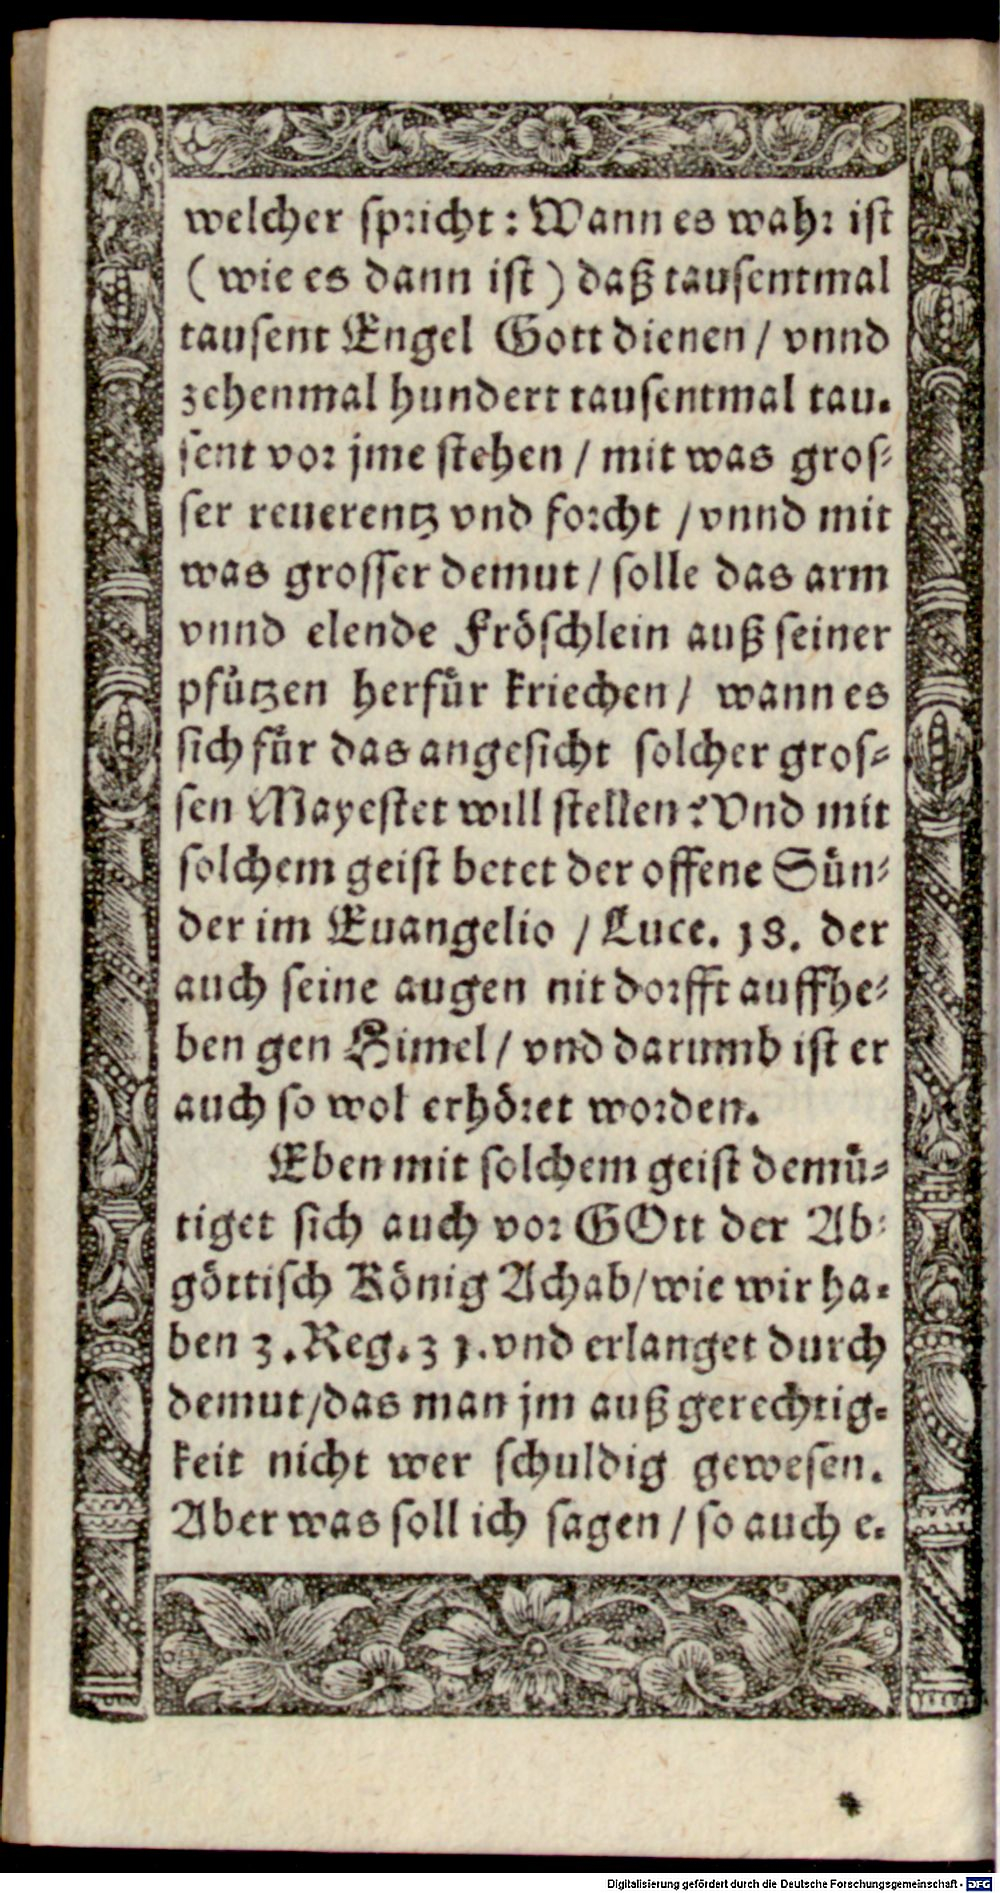 welcher spricht: Wann es wahr ist
( wie es dann ist ) daß tausentmal
tausent Engel Gott dienen / vnnd
zehenmal hundert tausentmal tau-
sent vor jme stehen / mit was gros-
ser reuerentz vnd forcht / vnnd mit
was grosser demut / solle das arm
vnnd elende Fröschlein auß seiner
pfützen herfür kriechen / wann es
sich für das angesicht solcher gros-
sen Mayestet will stellen? Vnd mit
solchem geist betet der offene Sün-
der im Euangelio / Luce. 18. der
auch seine augen nit dorfft auffhe-
ben gen Himel / vnd darumb ist er
auch so wol erhöret worden.
Eben mit solchem geist demü-
tiget sich auch vor GOtt der Ab-
göttisch König Achab / wie wir ha-
ben 3. Reg. 31. vnd erlanget durch
demut / das man jm auß gerechtig-
keit nicht wer schuldig gewesen.
Aber was soll ich sagen / so auch e-
Digitalisierung gefördert durch die Deutsche Forschungsgemeinschaft - DFG